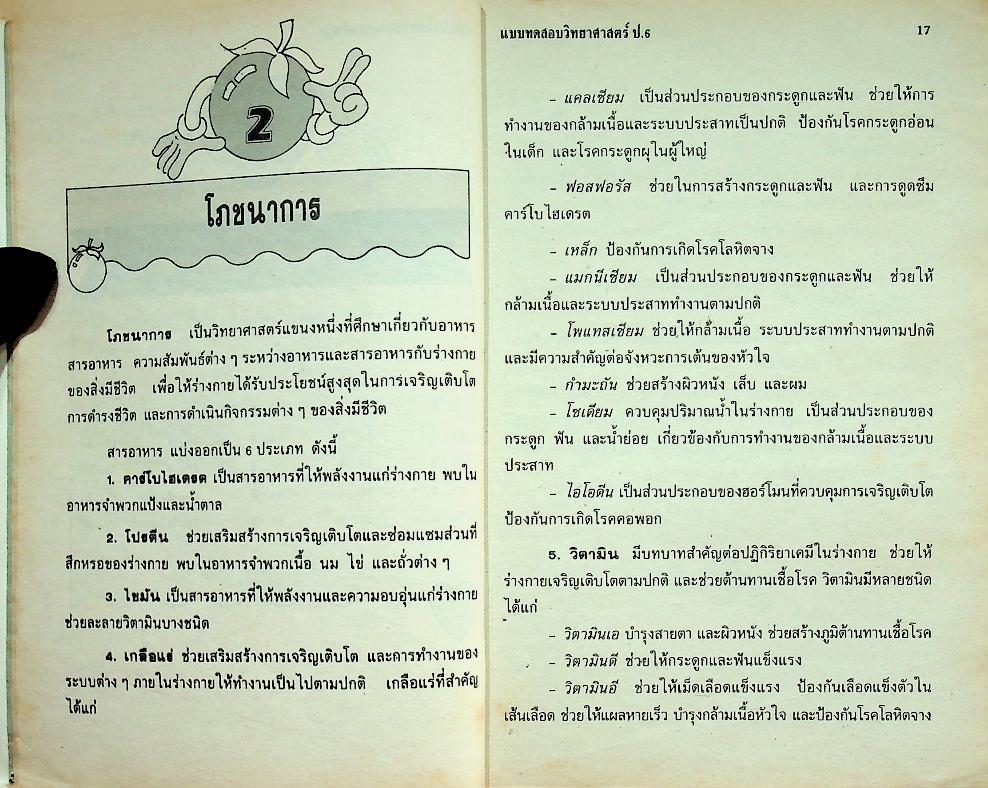 2
โภชนาการ
โภชนาการ เป็นวิทยาศาสตร์แขนงหนึ่งที่ศึกษาเกี่ยวกับอาหาร
สารอาหาร ความสัมพันธ์ต่าง ๆ ระหว่างอาหารและสารอาหารกับร่างกาย
ของสิ่งมีชีวิต เพื่อให้ร่างกายได้รับประโยชน์สูงสุดในการเจริญเติบโต
การดำรงชีวิต และการดำเนินกิจกรรมต่าง ๆ ของสิ่งมีชีวิต
สารอาหาร แบ่งออกเป็น 6 ประเภท ดังนี้
1. คาร์โบไฮเดรต เป็นสารอาหารที่ให้พลังงานแก่ร่างกาย พบใน
อาหารจำพวกแป้งและน้ำตาล
2. โปรตีน ช่วยเสริมสร้างการเจริญเติบโตและซ่อมแซมส่วนที่
สึกหรอของร่างกาย พบในอาหารจำพวกเนื้อ นม ไข่ และถั่วต่าง ๆ
3. ไขมัน เป็นสารอาหารที่ให้พลังงานและความอบอุ่นแก่ร่างกาย
ช่วยละลายวิตามินบางชนิด
4. เกลือแร่ ช่วยเสริมสร้างการเจริญเติบโต และการทำงานของ
ระบบต่าง ๆ ภายในร่างกายให้ทำงานเป็นไปตามปกติ เกลือแร่ที่สำคัญ
ได้แก่
แบบทดสอบวิทยาศาสตร์ ป.6 17
- แคลเซียม เป็นส่วนประกอบของกระดูกและฟัน ช่วยให้การ
ทำงานของกล้ามเนื้อและระบบประสาทเป็นปกติ ป้องกันโรคกระดูกอ่อน
ในเด็ก และโรคกระดูกผุในผู้ใหญ่
- ฟอสฟอรัส ช่วยในการสร้างกระดูกและฟัน และการดูดซึม
คาร์โบไฮเดรต
- เหล็ก ป้องกันการเกิดโรคโลหิตจาง
- แมกนีเซียม เป็นส่วนประกอบของกระดูกและฟัน ช่วยให้
กล้ามเนื้อและระบบประสาททำงานตามปกติ
- โพแทสเซียม ช่วยให้กล้ามเนื้อ ระบบประสาททำงานตามปกติ
และมีความสำคัญต่อจังหวะการเต้นของหัวใจ
- กำมะถัน ช่วยสร้างผิวหนัง เล็บ และผม
- โซเดียม ควบคุมปริมาณน้ำในร่างกาย เป็นส่วนประกอบของ
กระดูก ฟัน และน้ำย่อย เกี่ยวข้องกับการทำงานของกล้ามเนื้อและระบบ
ประสาท
- ไอโอดีน เป็นส่วนประกอบของฮอร์โมนที่ควบคุมการเจริญเติบโต
ป้องกันการเกิดโรคคอพอก
5. วิตามิน มีบทบาทสำคัญต่อปฏิกิริยาเคมีในร่างกาย ช่วยให้
ร่างกายเจริญเติบโตตามปกติ และช่วยต้านทานเชื้อโรค วิตามินมีหลายชนิด
ได้แก่
- วิตามินเอ บำรุงสายตา และผิวหนัง ช่วยสร้างภูมิต้านทานเชื้อโรค
- วิตามินดี ช่วยให้กระดูกและฟันแข็งแรง
- วิตามินอี ช่วยให้เม็ดเลือดแข็งแรง ป้องกันเลือดแข็งตัวใน
เส้นเลือด ช่วยให้แผลหายเร็ว บำรุงกล้ามเนื้อหัวใจ และป้องกันโรคโลหิตจาง